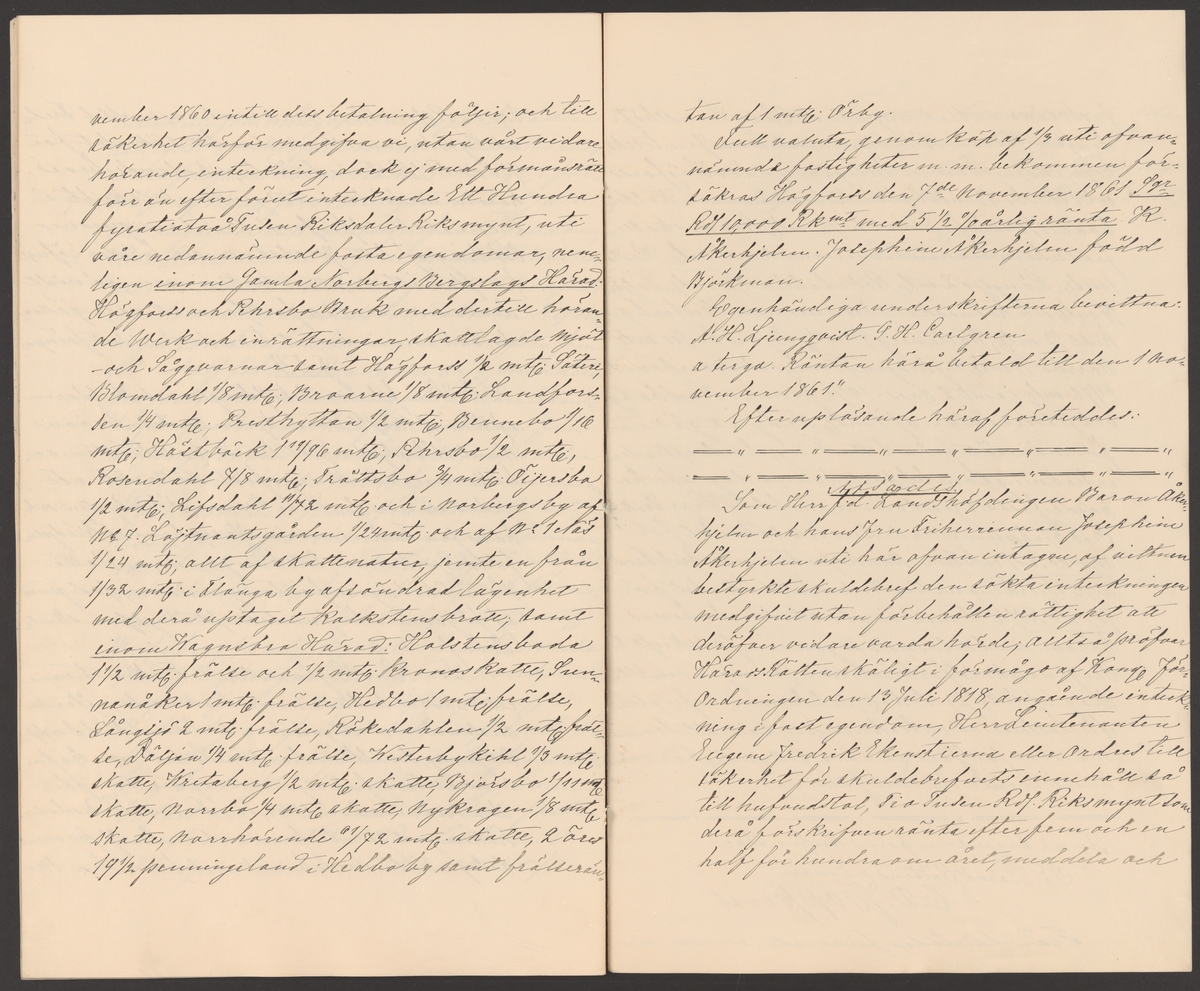 vember 1860 intill dess betalning följer; och till
säkerhet härför medgifva vi, utan vårt vidare
hörande, inteckning, dock ej med förmånsrätt
förr än efter förut intecknade Ett Hundra
fyratiotvå Tusen Riksdaler Riksmynt, uti
våre nedannämnde fasta egendomar, nem-
ligen inom Gamla Norbergs Bergslags Härad:
Högforss och Rhrsbo Bruk med dertill höran-
de Werk och inrättningar, skattlagde Mjöl
- och Sågqvarnar samt Högforss 1/2 mtl; Säteri,
Blomdahl 1/8 mtl; Broarne 1/8 mtl; Landfors-
ben 1/4 mtl; Presthyttan 1/2 mtl; Bennebo 5/16
mtl; Hästbäck 1 19/96 mtl; Rhrsbo 1/2 mtl;
Rosendahl 7/8 mtl; Trättsbo 3/4 mtl; Tijersbo
1/2 mtl; Lifsdahl 11/72 mtl och i Norbergsby af
No 7. Löjtnantsgården 1/24 mtl och af No 1 Näs
1/24 mtl; allt af skattenatur, jemte en från
1/32 mtl i Klönga by afsöndrad lägenhet
med derå uptaget Kalkstensbrott; samt
inom Wagnsbro Härad: Holstensboda
1 1/2 mtl frälse och 1/2 mtl Kronoskatte, Sun-
nanåker 1 mtl frälse, Hedbo 1 mtl frälse,
Långsjö 2 mtl frälse, Rökedahlen 1/2 mtl fräl-
se, Däljan 1/4 mtl frälse, Westerbykihl 1/3 mtl
skatte, Wretaberg 1/2 mtl skatte, Bjorsbo mtl
skatte, Norrbo 1/4 mtl skatte, Nykrogen 1/8 mtl
skatte, Norrhörende 61/72 mtl skatte, 2 öres
19 1/2 penningeland i Hedbo by samt frälserän-
tan af 1 mtl Örby.
Full valuta, genom köp af 1/3 uti ofvan-
nämnde fastigheter m. m. bekommen för-
säkras Högforss den 7de November 1861 Sgr
Rdr 10,000 Rkmt med 5 1/2 % årlig ränta K.
Åkerhjelm. Josephine Åkerhjelm född
Björkman.
Egenhändiga underskrifterna bevittna:
A. H. Ljungqvist. G. H. Carlgren
a tergo. Räntan härå betald till den 1 No-
vember 1861."
Efter upläsande häraf företeddes:
— " — " — " — " — " — " — "
— " — " — " — " — " — " — "
Afsades,
Som Herr f d Landshöfdingen Baron Åker-
hjelm och hans Fru Friherrennan Josephine
Åkerhjelm uti här ofvan intagne, af vittnen
bestyrkte skuldebref den sökta inteckningen
medgifvit utan förbehållen rättighet att
deröfver vidare varda hörde; Alltså pröfvar
Härads Rätten skäligt i förmågo af Kongl För-
Ordningen den 13 Juli 1818, angående inteck-
ning i fast egendom, Herr Lieutenanten
Eugene Fredrik Ekenstierna eller Ordres till
säkerhet för skuldebrefvets innehåll så
till hufvudstol, Tio Tusen Rdr Riksmynt som
derå förskrifven ränta efter fem och en
half för hundra om året, meddela och